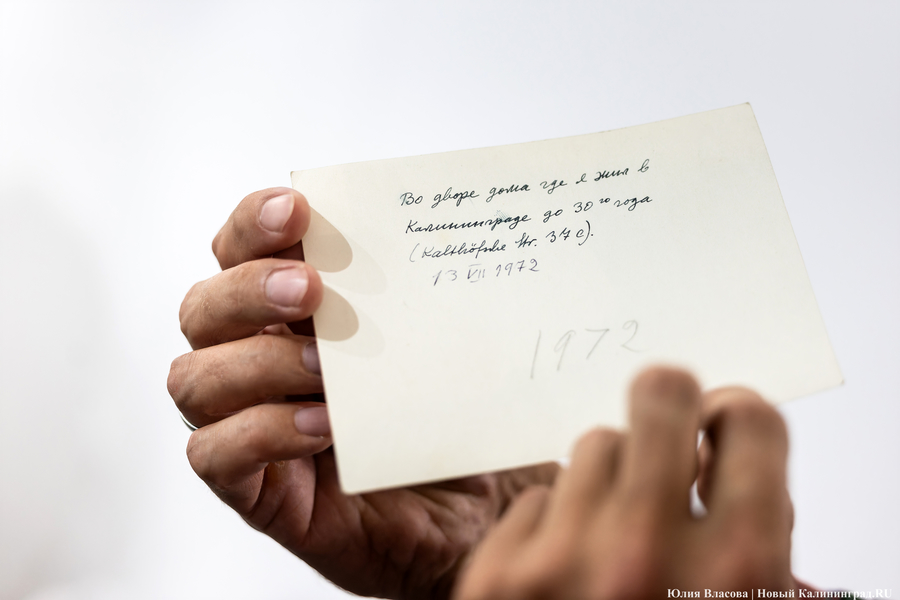 Во дворе дома где я жил в
Калининграде до 30го года
(Kalthöfsche Str. 37c).
13 VII 1972
1972
Юлия Власова | Новый Калининград.RU